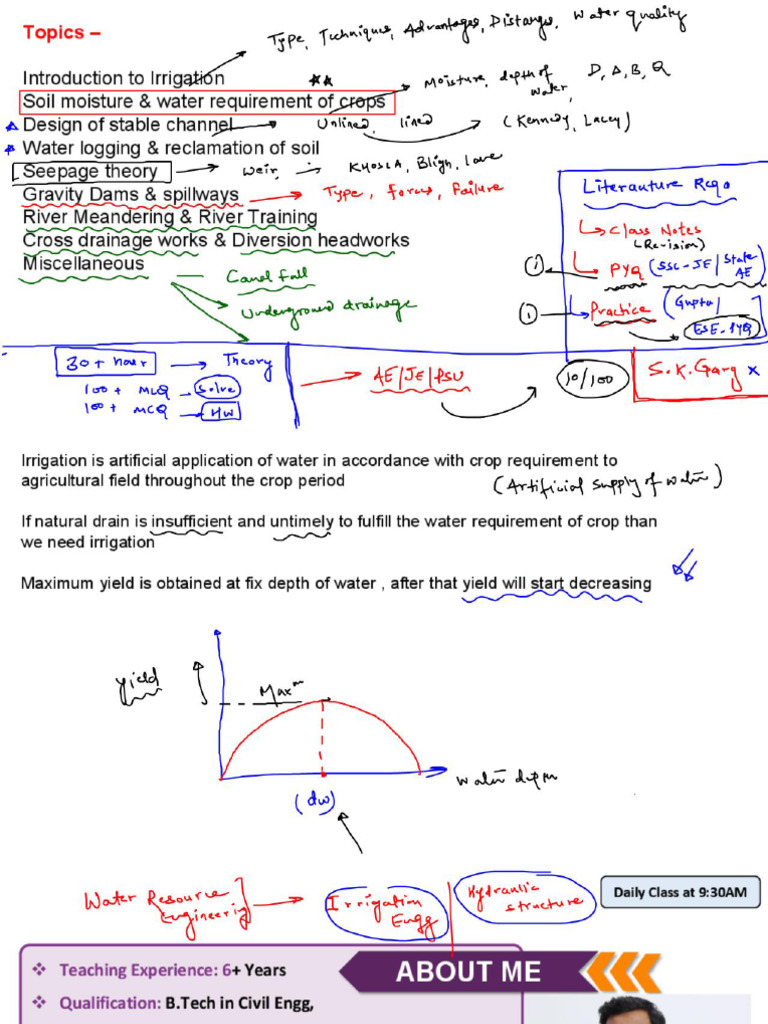 Topics –
Type, Techniques, Advantages, Distanges, Water quality
Introduction to Irrigation
Soil moisture & water requirement of crops
Moisture, depth of water, D, Δ, B, Q
Design of stable channel
Unlined, lined
(Kennedy, Lacey)
Water logging & reclamation of soil
Seepage theory
Weir, KHOSLA, Bligh, Lave
Gravity Dams & spillways
Type, forces, Failure
River Meandering & River Training
Cross drainage works & Diversion headworks
Miscellaneous
Canal fall
Underground drainage
Literauture Reqo
Class Notes
(Revision)
① PYQ (SSC-JE/State AE)
① Practice (Gupta/
ESE-PYQ
30+ hour
Theory
100+ MCQ Solve
100+ MCQ HW
AE/JE/PSU
10/100
S.K.Garg x
Irrigation is artificial application of water in accordance with crop requirement to
agricultural field throughout the crop period
(Artificial supply of water)
If natural drain is insufficient and untimely to fulfill the water requirement of crop than
we need irrigation
Maximum yield is obtained at fix depth of water , after that yield will start decreasing
yield
Maxᵐ
water depth
(dw)
Water Resource
Engineering
Irrigation
Engg
Hydraulic
structure
Daily Class at 9:30AM
❖ Teaching Experience: 6+ Years
ABOUT ME
❖ Qualification: B.Tech in Civil Engg,